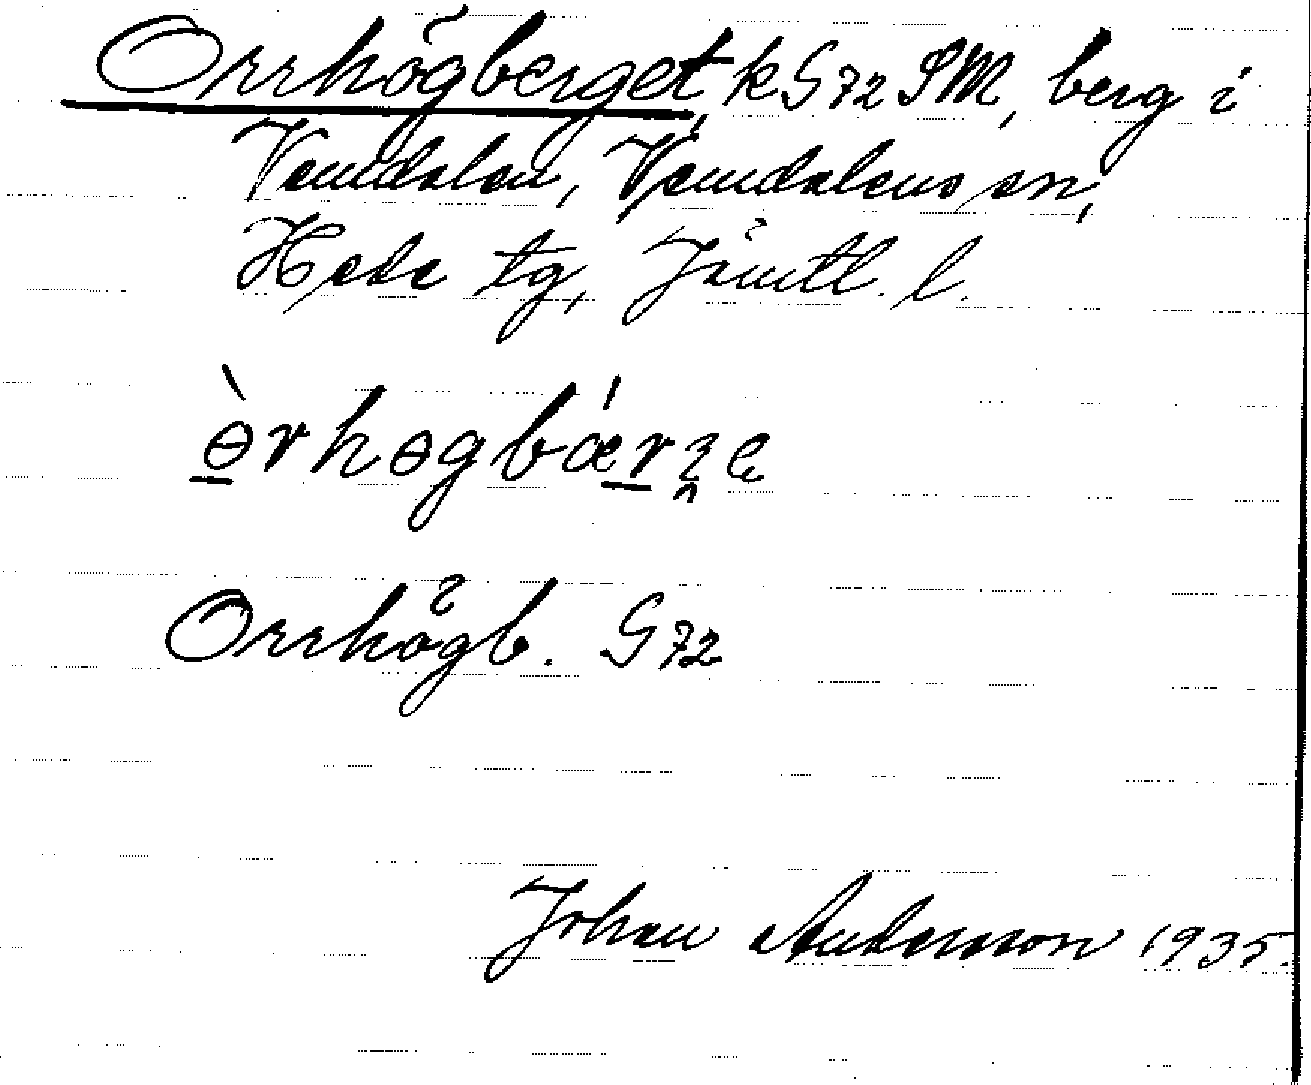 Orrhögberget, k G72 SM, berg i
Vemdalen, Vemdalens sn,
Hede tg, Jämtl. l.
Orrhögb. G72
Johan Anderson 1935.